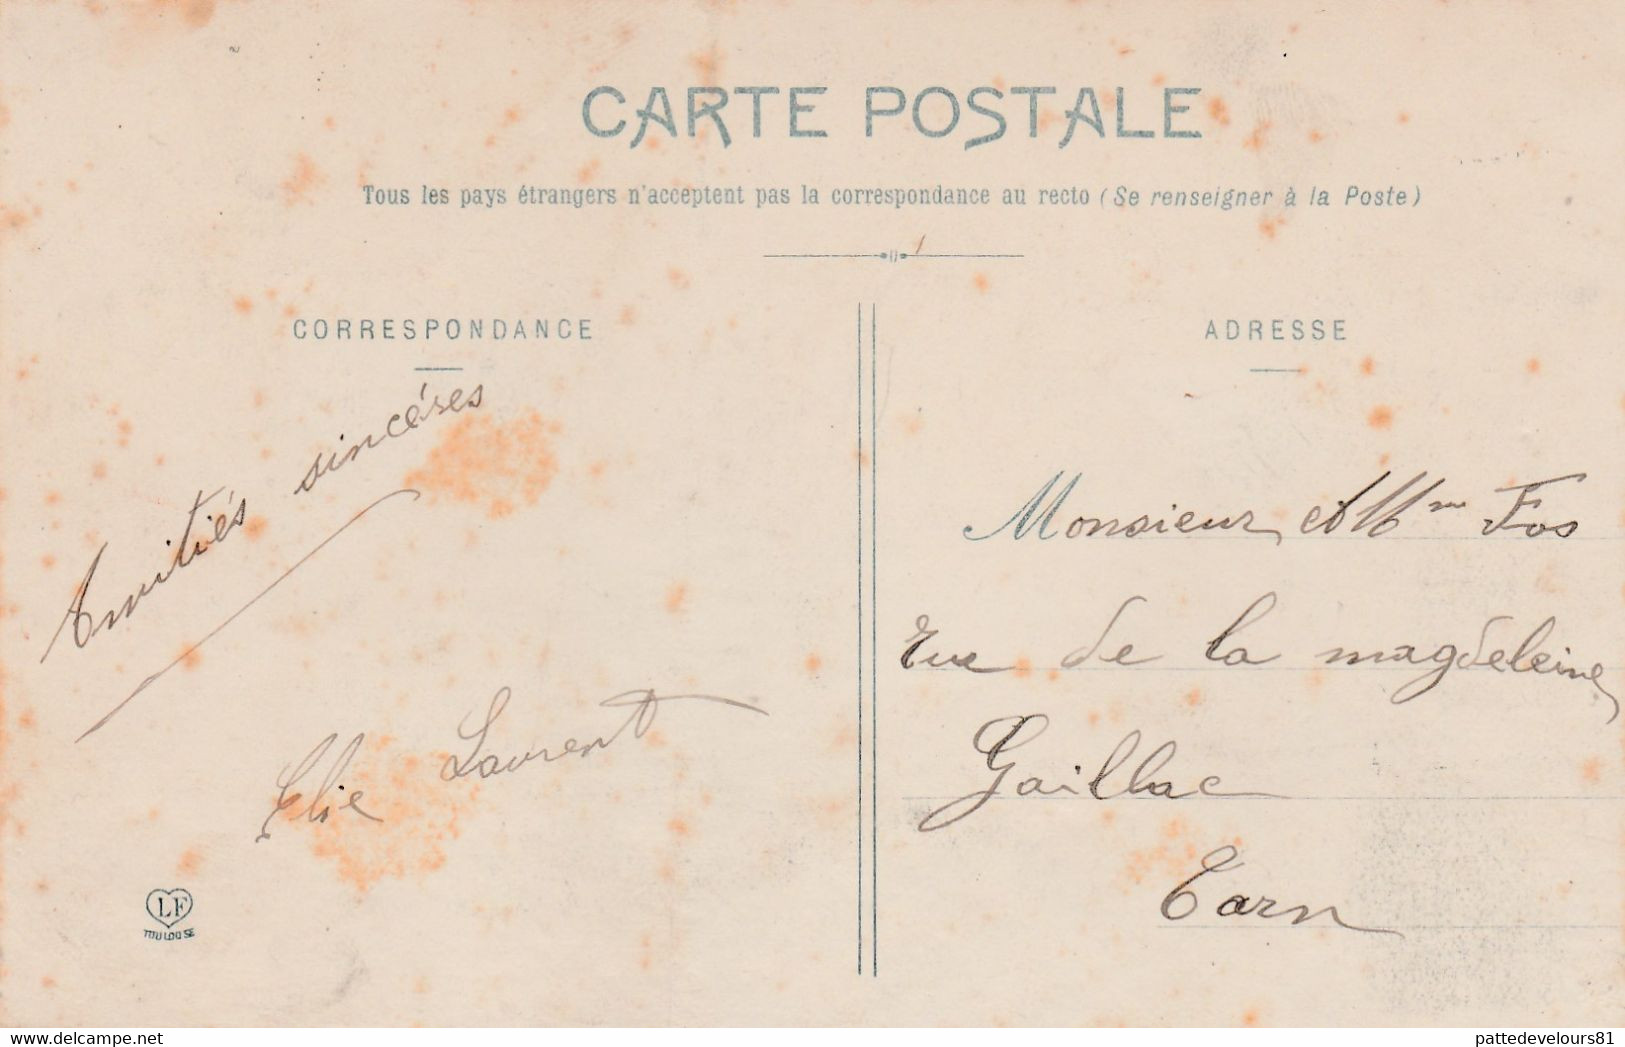 CARTE POSTALE
Tous les pays étrangers n'acceptent pas la correspondance au recto (Se renseigner à la Poste)
CORRESPONDANCE
Amitiés sincéres
Elie Laurent
LF
TOULOUSE
ADRESSE
Monsieur et Mme Fos
Rue de la magdeleine
Gaillac
Tarn
delcampe.net
pattedevelours81